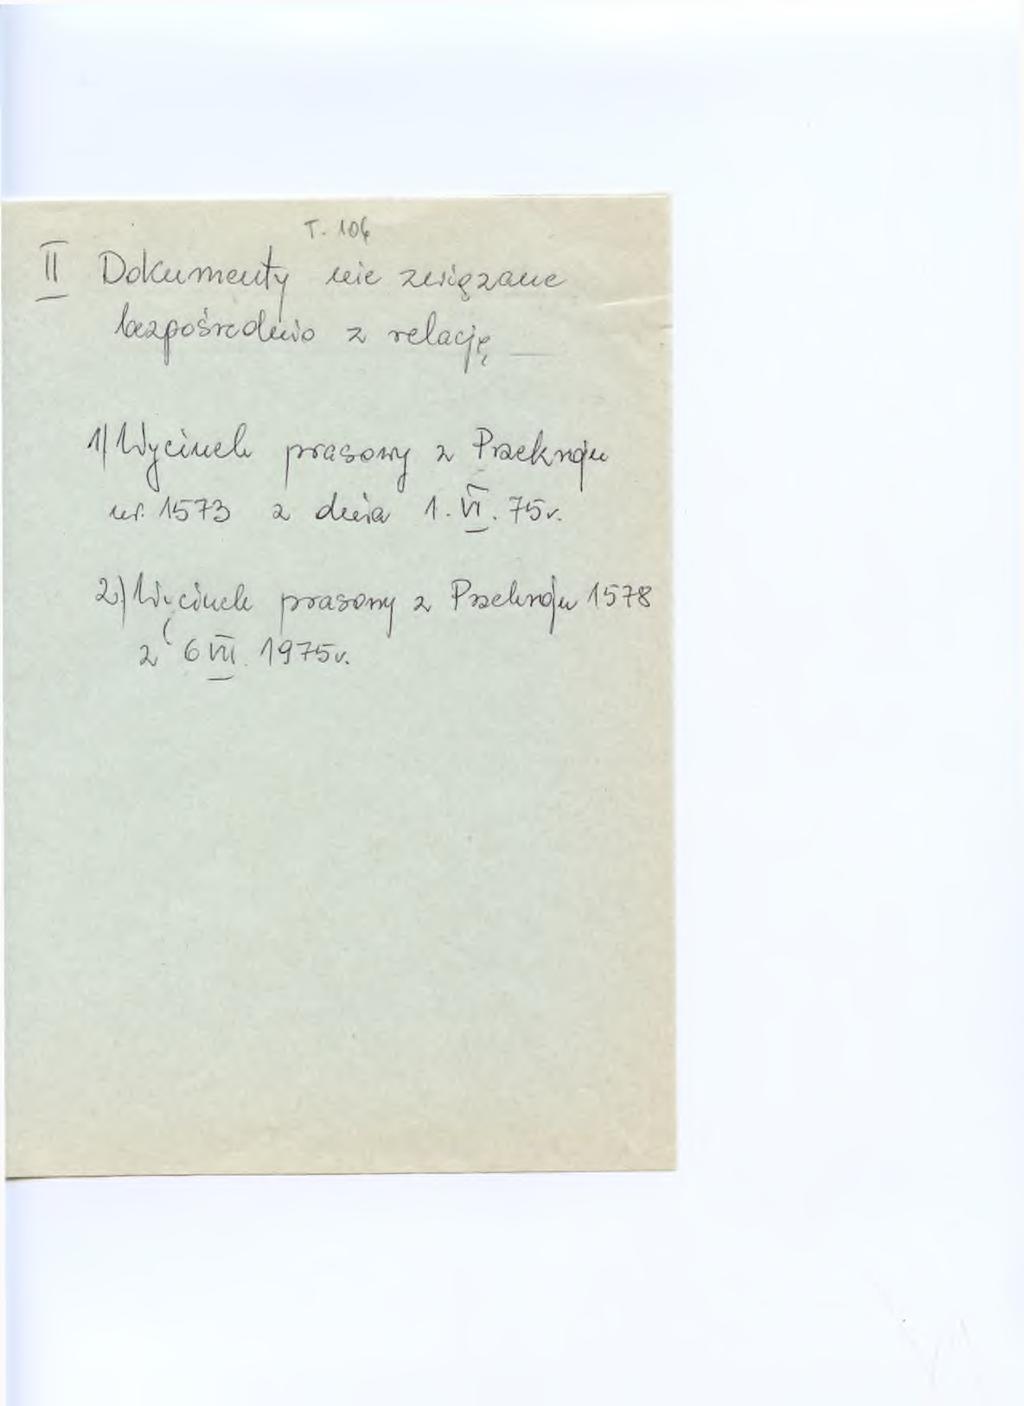 T. 104
II Dokumenty nie związane
bezpośrednio z relacją
1) Wycinek prasowy z Przekroju
nr. 1573 z dnia 1. VI. 75r.
2) Wycinek prasowy z Przekroju 1578
z 6 VII. 1975r.